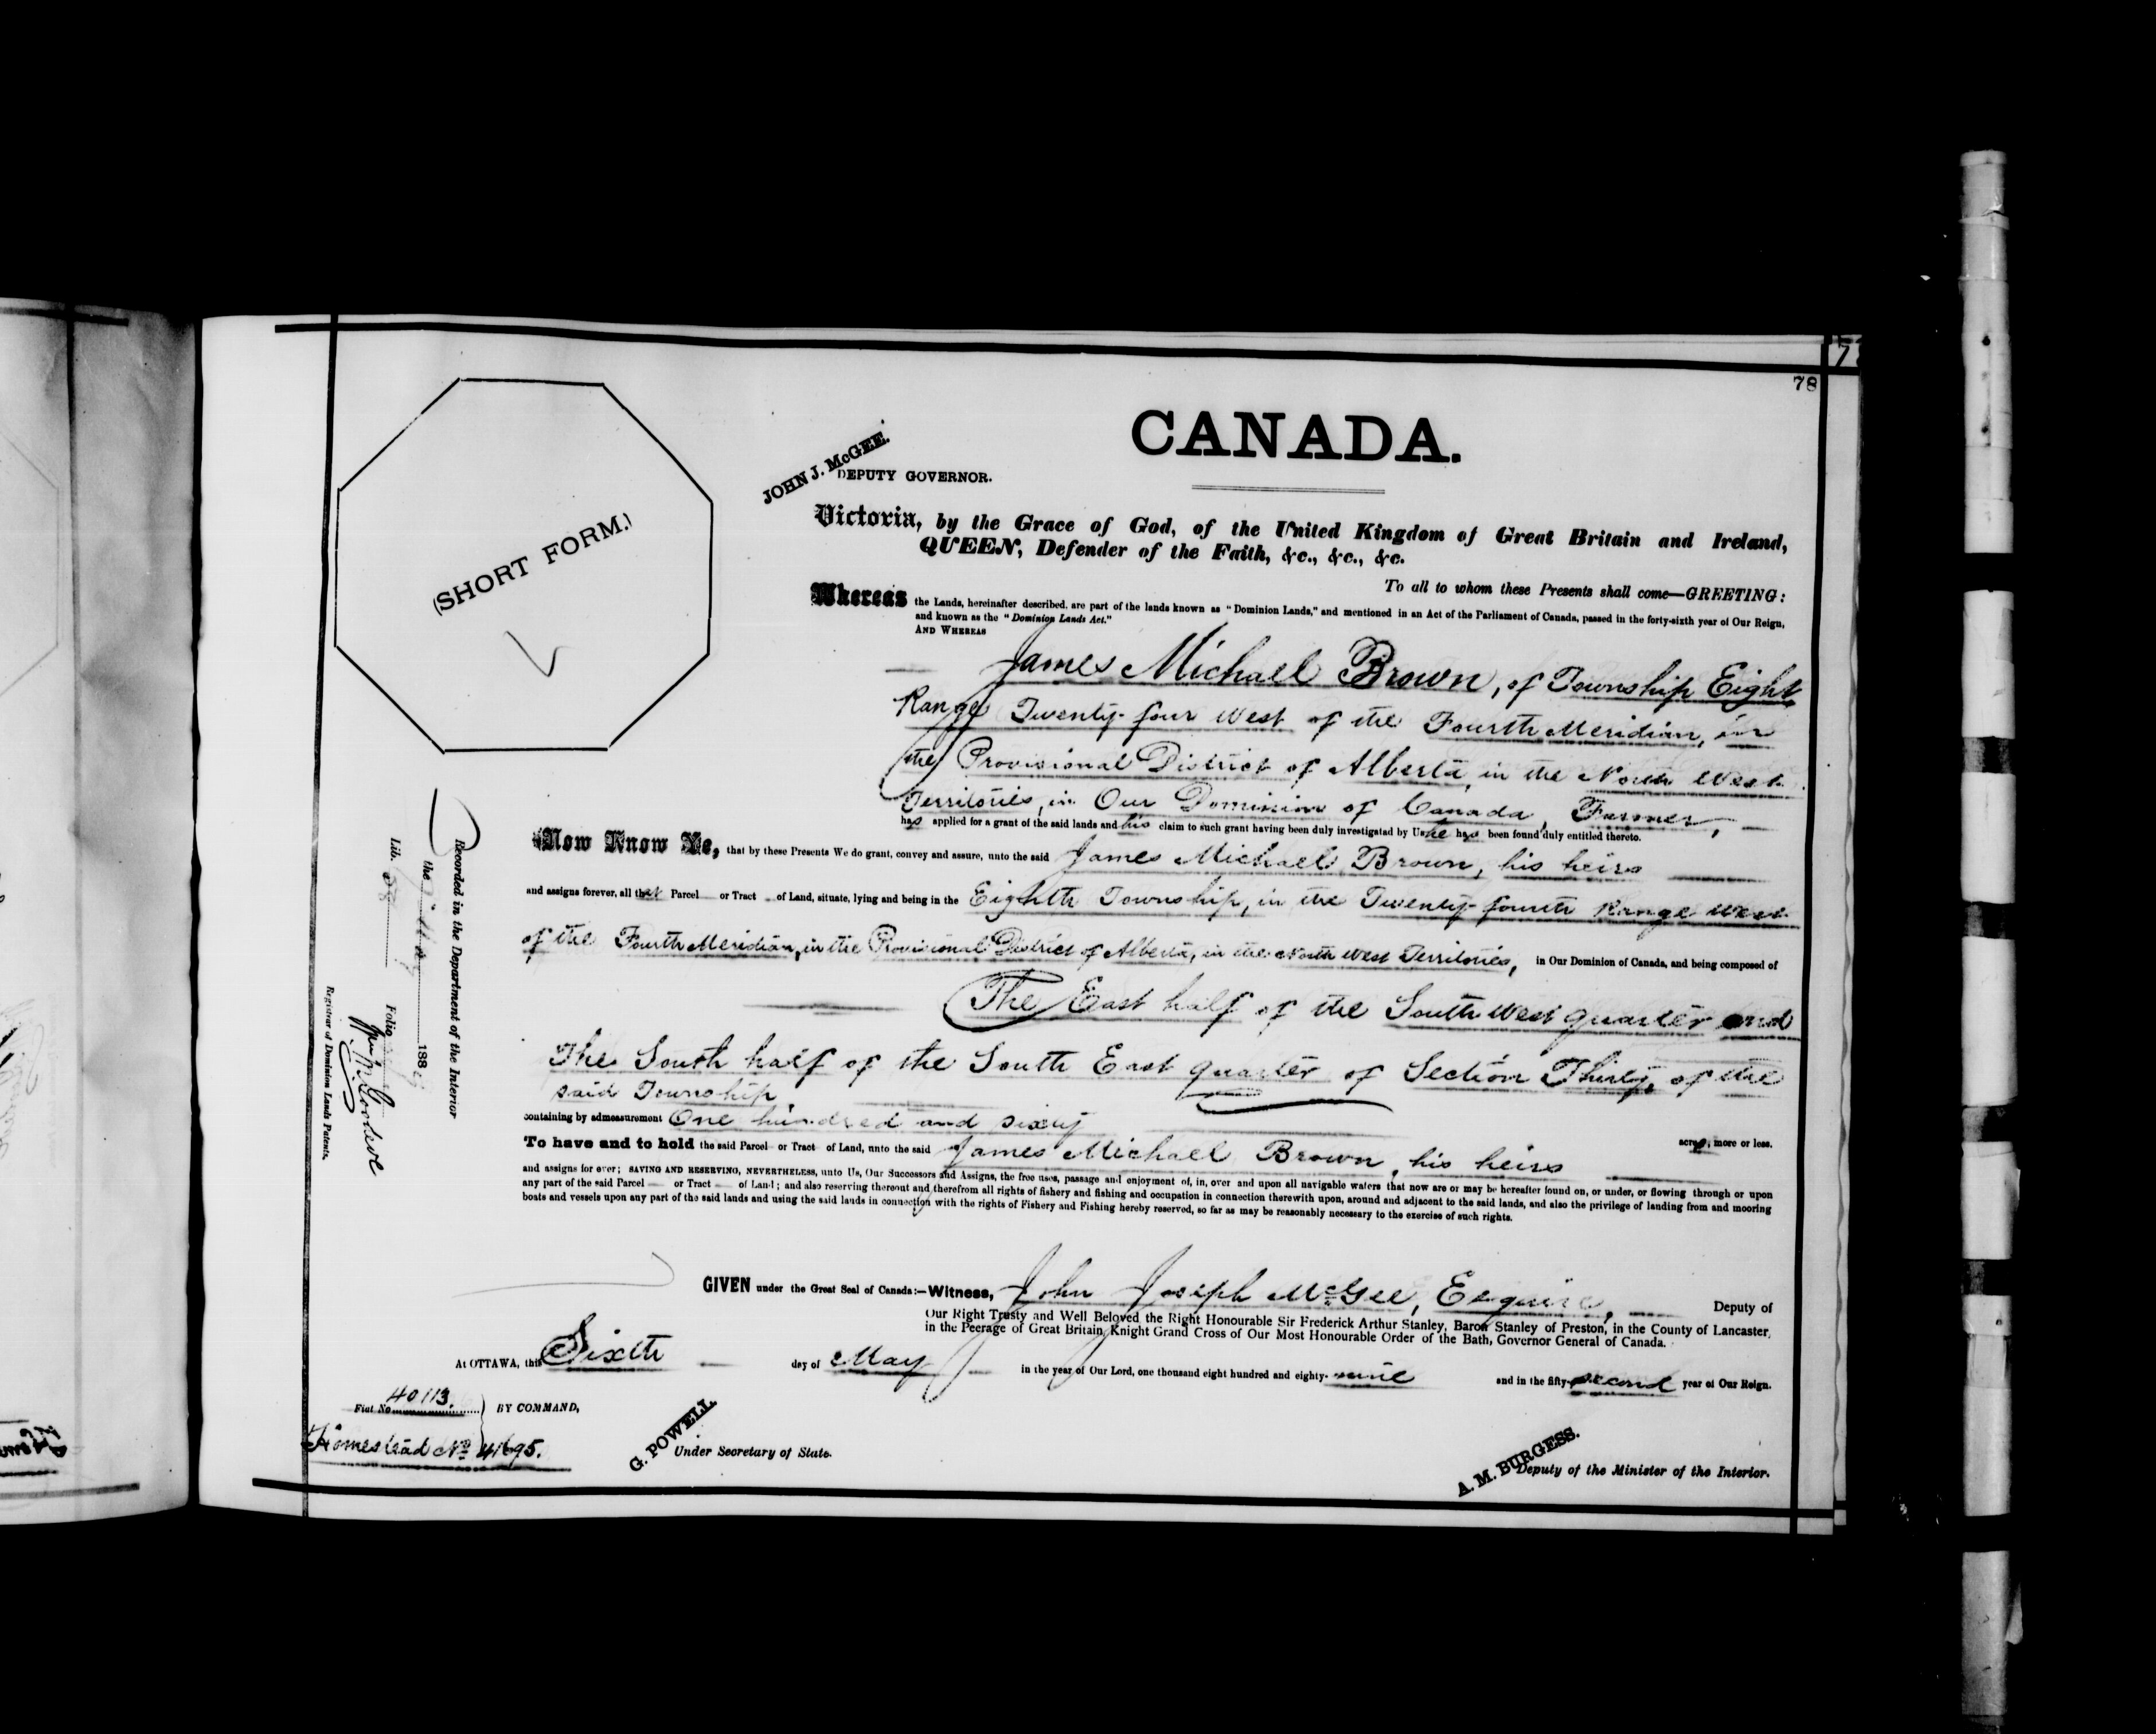 78
CANADA.
JOHN J. McGEE.
DEPUTY GOVERNOR.
(SHORT FORM.)
Victoria, by the Grace of God, of the United Kingdom of Great Britain and Ireland,
QUEEN, Defender of the Faith, &c., &c., &c.
To all to whom these Presents shall come—GREETING:
Whereas the Lands, hereinafter described, are part of the lands known as "Dominion Lands," and mentioned in an Act of the Parliament of Canada, passed in the forty-sixth year of Our Reign,
and known as the "Dominion Lands Act."
AND WHEREAS
James Michael Brown, of Township Eight,
Range Twenty-four West of the Fourth Meridian, in
the Provisional District of Alberta, in the North West
Territories, in Our Dominion of Canada, Farmer,
has applied for a grant of the said lands and his claim to such grant having been duly investigated by Us he has been found duly entitled thereto.
Now Know Ye, that by these Presents We do grant, convey and assure, unto the said James Michael Brown, his heirs
and assigns forever, all that Parcel or Tract of Land, situate, lying and being in the Eighth Township, in the Twenty-fourth Range West
of the Fourth Meridian, in the Provisional District of Alberta, in the North West Territories, in Our Dominion of Canada, and being composed of
The East half of the South West quarter and
The South half of the South East quarter of Section Thirty, of the
said Township
containing by admeasurement One hundred and sixty
acres, more or less.
To have and to hold the said Parcel or Tract of Land, unto the said James Michael Brown, his heirs
and assigns for ever; SAVING AND RESERVING, NEVERTHELESS, unto Us, Our Successors and Assigns, the free uses, passage and enjoyment of, in, over and upon all navigable waters that now are or may be hereafter found on, or under, or flowing through or upon
any part of the said Parcel or Tract of Land; and also reserving thereout and therefrom all rights of fishery and fishing and occupation in connection therewith upon, around and adjacent to the said lands, and also the privilege of landing from and mooring
boats and vessels upon any part of the said lands and using the said lands in connection with the rights of Fishery and Fishing hereby reserved, so far as may be reasonably necessary to the exercise of such rights.
GIVEN under the Great Seal of Canada:—Witness, John Joseph McGee, Esquire, Deputy of
Our Right Trusty and Well Beloved the Right Honourable Sir Frederick Arthur Stanley, Baron Stanley of Preston, in the County of Lancaster,
in the Peerage of Great Britain, Knight Grand Cross of Our Most Honourable Order of the Bath, Governor General of Canada.
At OTTAWA, this Sixth day of May in the year of Our Lord, one thousand eight hundred and eighty-nine and in the fifty-second year of Our Reign.
Fiat No. 40113. BY COMMAND,
Homestead No. 41695.
G. POWELL.
Under Secretary of State.
A. M. BURGESS.
Deputy of the Minister of the Interior.
Recorded in the Department of the Interior
the 188
Lib. 58 Folio
Registrar of Dominion Lands Patents.